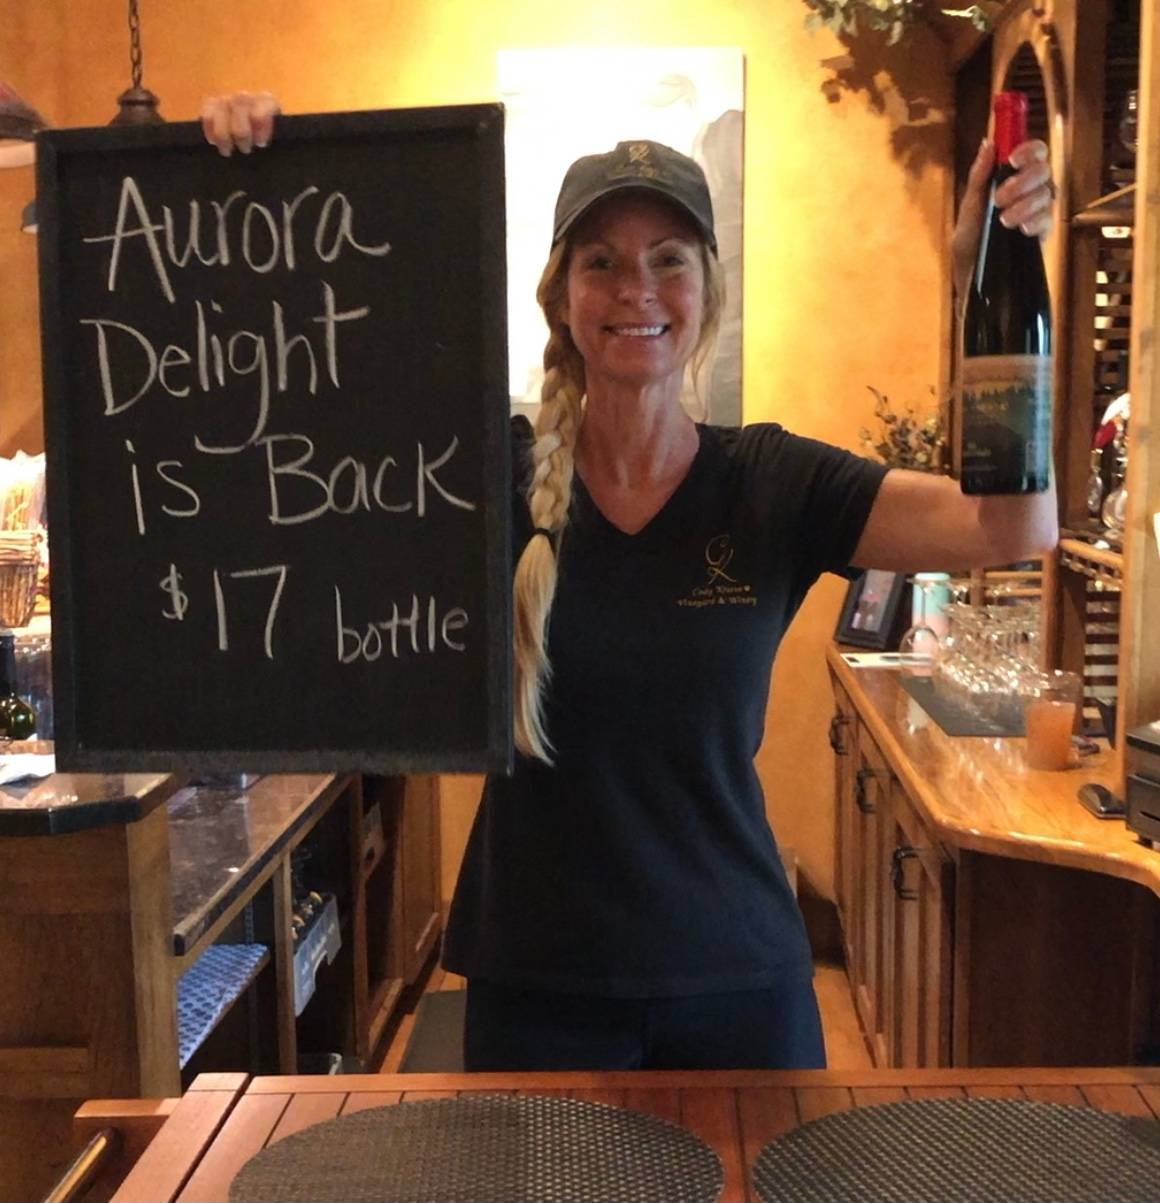 Aurora
Delight
is Back
$17 bottle
Vineyard & Winery